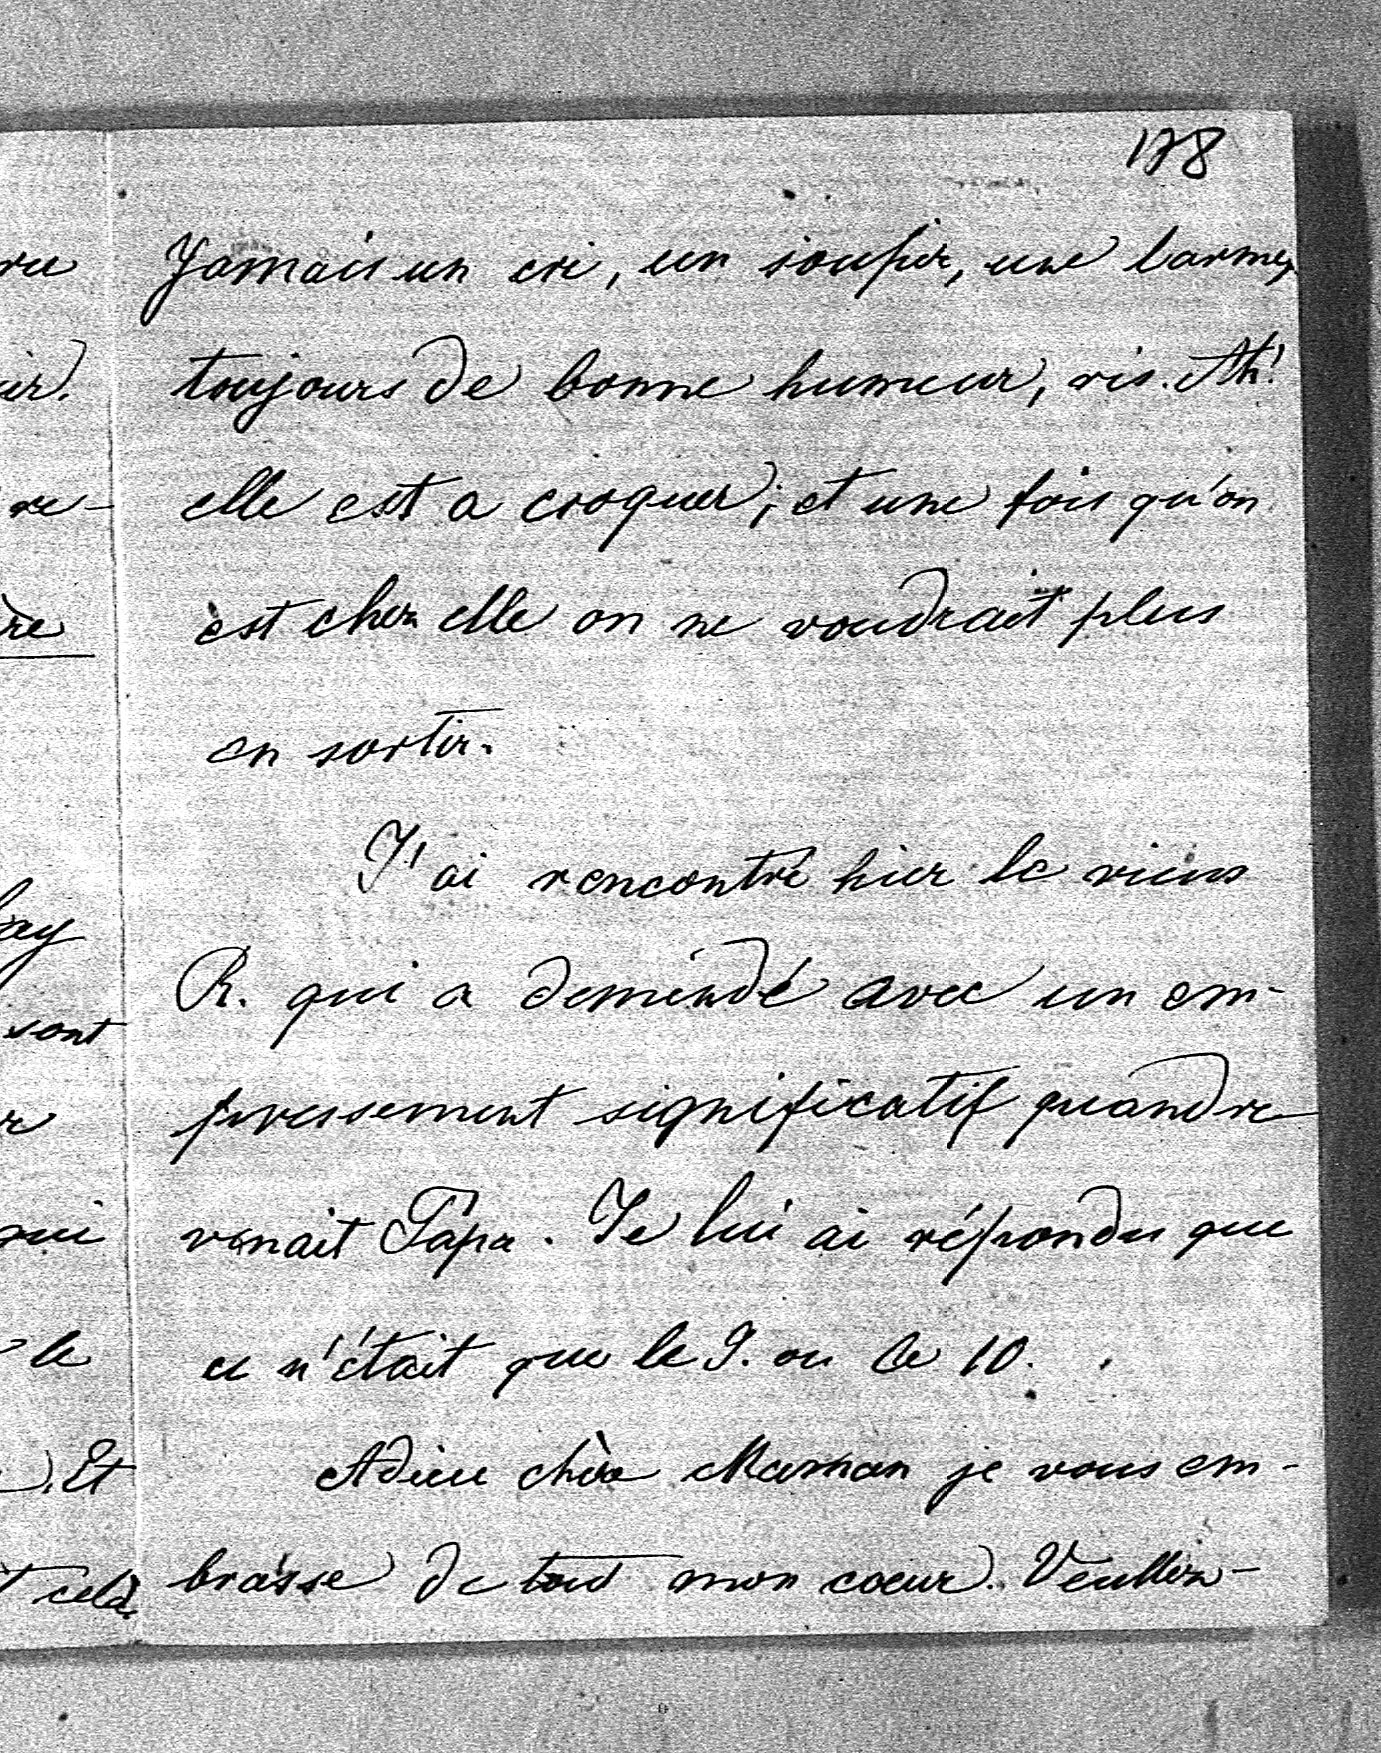 178
Jamais un cri, un soupir, une larme,
toujours de bonne humeur, ris. Ah!
elle est a croquer; et une fois qu'on
est chez elle on ne voudrait plus
en sortir.
J'ai rencontré hier le vieus
R. qui a demandé avec un em-
pressement significatif quand re
venait Papa. Je lui ai répondu que
ce n'était que le 9. ou le 10.
Adieu chère Maman je vous em-
brasse de tout mon coeur. Veuillez-
re-
ère
sont
qui
le
Et
cela